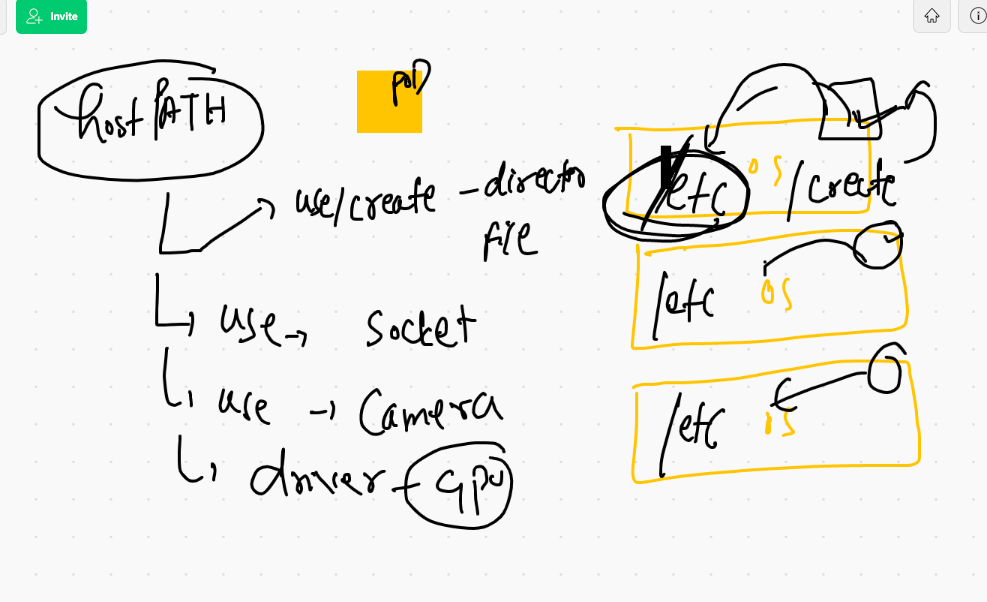 Invite
hostPATH
pod
use/create - directo
file
use → Socket
use → Camera
driver - GPU
/etc
OS
/create
/etc
OS
/etc
OS